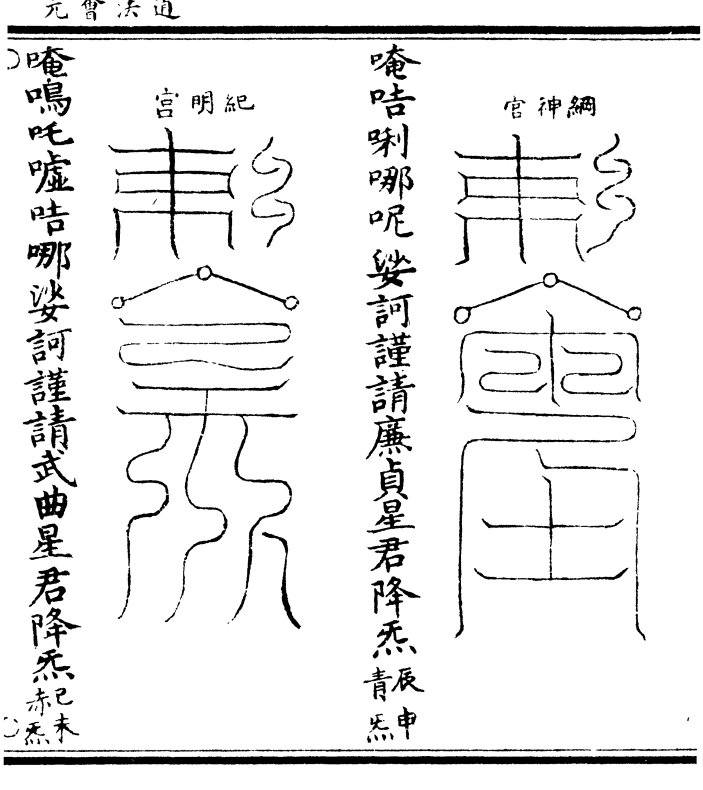 道法會元
綱神宮
唵咭唎哪呢娑訶謹請廉貞星君降炁
辰申
青炁
紀明宮
唵鳴吒嘘咭哪娑訶謹請武曲星君降炁
巳未
赤炁